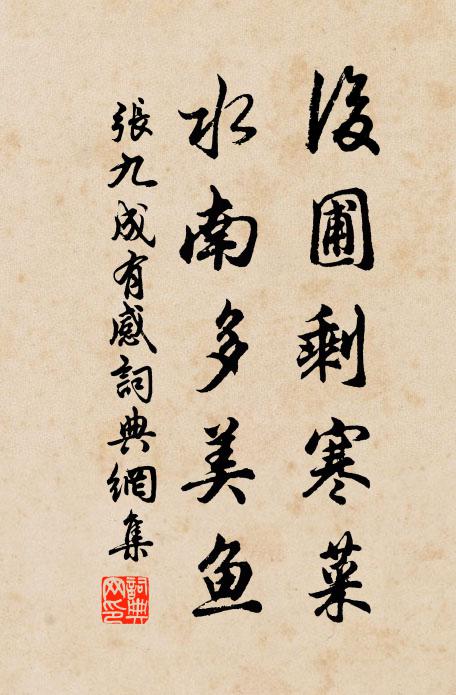 後圃剩寒菜
水南多美鱼
張九成有感詞典網集
詞典网印